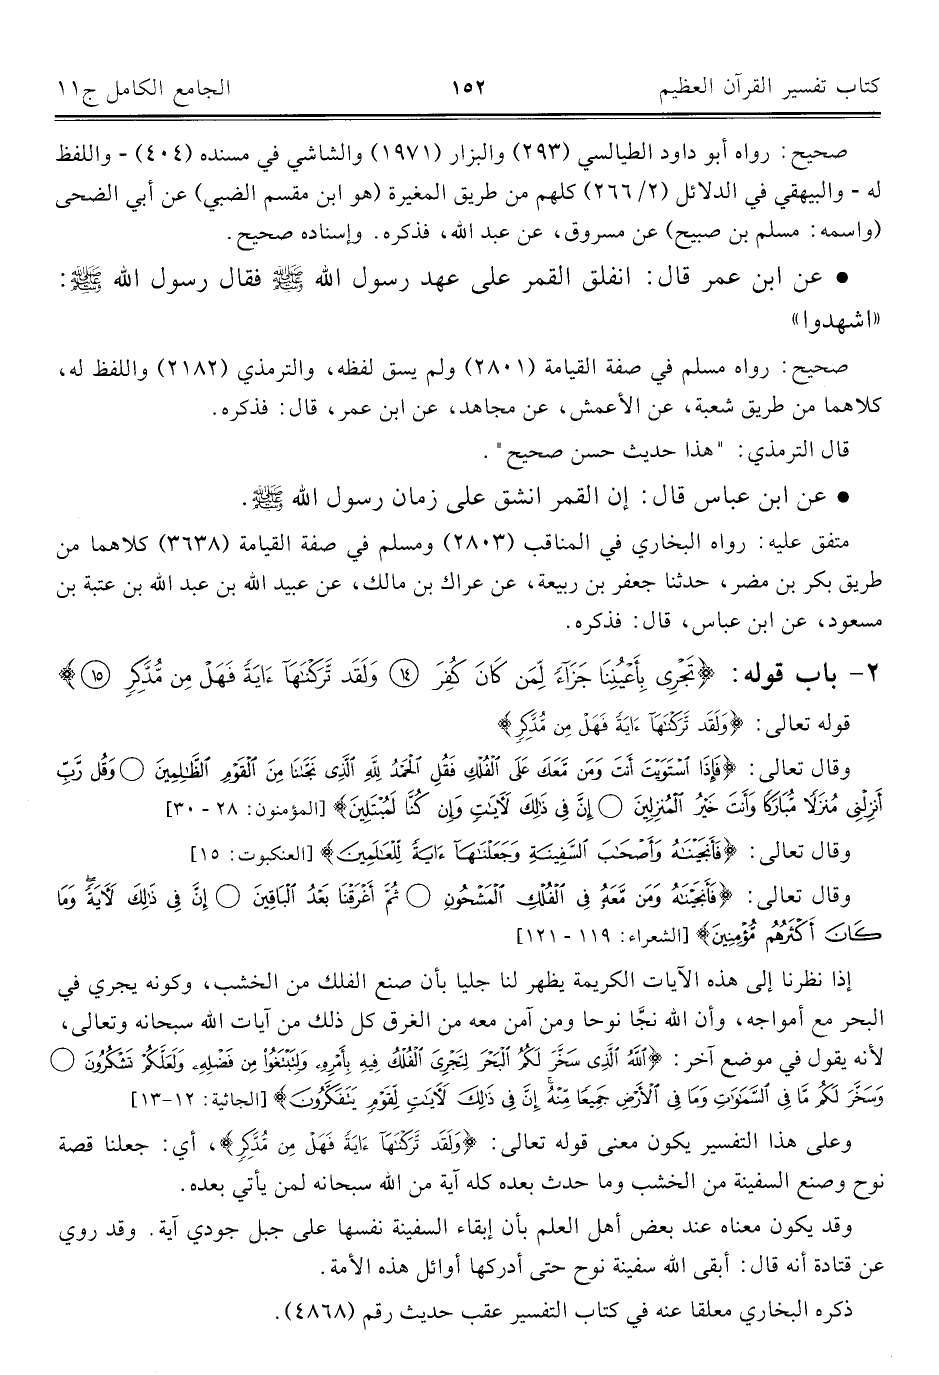 كتاب تفسير القرآن العظيم ١٥٢ الجامع الكامل ج١١
صحيح: رواه أبو داود الطيالسي (٢٩٣) والبزار (١٩٧١) والشاشي في مسنده (٤٠٤) - واللفظ
له - والبيهقي في الدلائل (٢/ ٢٦٦) كلهم من طريق المغيرة (هو ابن مقسم الضبي) عن أبي الضحى
(واسمه: مسلم بن صبيح) عن مسروق، عن عبد الله، فذكره. وإسناده صحيح.
• عن ابن عمر قال: انفلق القمر على عهد رسول الله ﷺ فقال رسول الله ﷺ:
«اشهدوا»
صحيح: رواه مسلم في صفة القيامة (٢٨٠١) ولم يسق لفظه، والترمذي (٢١٨٢) واللفظ له،
كلاهما من طريق شعبة، عن الأعمش، عن مجاهد، عن ابن عمر، قال: فذكره.
قال الترمذي: "هذا حديث حسن صحيح".
• عن ابن عباس قال: إن القمر انشق على زمان رسول الله ﷺ.
متفق عليه: رواه البخاري في المناقب (٢٨٠٣) ومسلم في صفة القيامة (٣٦٣٨) كلاهما من
طريق بكر بن مضر، حدثنا جعفر بن ربيعة، عن عراك بن مالك، عن عبيد الله بن عبد الله بن عتبة بن
مسعود، عن ابن عباس، قال: فذكره.
٢- باب قوله: ﴿تَجْرِي بِأَعْيُنِنَا جَزَآءً لِّمَن كَانَ كُفِرَ ١٤ وَلَقَد تَّرَكْنَٰهَآ ءَايَةً فَهَلْ مِن مُّدَّكِرٍ ١٥﴾
قوله تعالى: ﴿وَلَقَد تَّرَكْنَٰهَآ ءَايَةً فَهَلْ مِن مُّدَّكِرٍ﴾
وقال تعالى: ﴿فَإِذَا ٱسْتَوَيْتَ أَنتَ وَمَن مَّعَكَ عَلَى ٱلْفُلْكِ فَقُلِ ٱلْحَمْدُ لِلَّهِ ٱلَّذِي نَجَّىٰنَا مِنَ ٱلْقَوْمِ ٱلظَّٰلِمِينَ ۝ وَقُل رَّبِّ
أَنزِلْنِي مُنزَلًا مُّبَارَكًا وَأَنتَ خَيْرُ ٱلْمُنزِلِينَ ۝ إِنَّ فِي ذَٰلِكَ لَأٓيَٰتٍ وَإِن كُنَّا لَمُبْتَلِينَ﴾ [المؤمنون: ٢٨ - ٣٠]
وقال تعالى: ﴿فَأَنجَيْنَٰهُ وَأَصْحَٰبَ ٱلسَّفِينَةِ وَجَعَلْنَٰهَآ ءَايَةً لِّلْعَٰلَمِينَ﴾ [العنكبوت: ١٥]
وقال تعالى: ﴿فَأَنجَيْنَٰهُ وَمَن مَّعَهُۥ فِي ٱلْفُلْكِ ٱلْمَشْحُونِ ۝ ثُمَّ أَغْرَقْنَا بَعْدُ ٱلْبَاقِينَ ۝ إِنَّ فِي ذَٰلِكَ لَأٓيَةً ۖ وَمَا
كَانَ أَكْثَرُهُم مُّؤْمِنِينَ﴾ [الشعراء: ١١٩ - ١٢١]
إذا نظرنا إلى هذه الآيات الكريمة يظهر لنا جليا بأن صنع الفلك من الخشب، وكونه يجري في
البحر مع أمواجه، وأن الله نجَّا نوحا ومن آمن معه من الغرق كل ذلك من آيات الله سبحانه وتعالى،
لأنه يقول في موضع آخر: ﴿ٱللَّهُ ٱلَّذِي سَخَّرَ لَكُمُ ٱلْبَحْرَ لِتَجْرِيَ ٱلْفُلْكُ فِيهِ بِأَمْرِهِۦ وَلِتَبْتَغُوا۟ مِن فَضْلِهِۦ وَلَعَلَّكُمْ تَشْكُرُونَ ۝
وَسَخَّرَ لَكُم مَّا فِي ٱلسَّمَٰوَٰتِ وَمَا فِي ٱلْأَرْضِ جَمِيعًا مِّنْهُ ۚ إِنَّ فِي ذَٰلِكَ لَأٓيَٰتٍ لِّقَوْمٍ يَتَفَكَّرُونَ﴾ [الجاثية: ١٢-١٣]
وعلى هذا التفسير يكون معنى قوله تعالى: ﴿وَلَقَد تَّرَكْنَٰهَآ ءَايَةً فَهَلْ مِن مُّدَّكِرٍ﴾، أي: جعلنا قصة
نوح وصنع السفينة من الخشب وما حدث بعده كله آية من الله سبحانه لمن يأتي بعده.
وقد يكون معناه عند بعض أهل العلم بأن إبقاء السفينة نفسها على جبل جودي آية. وقد روي
عن قتادة أنه قال: أبقى الله سفينة نوح حتى أدركها أوائل هذه الأمة.
ذكره البخاري معلقا عنه في كتاب التفسير عقب حديث رقم (٤٨٦٨).